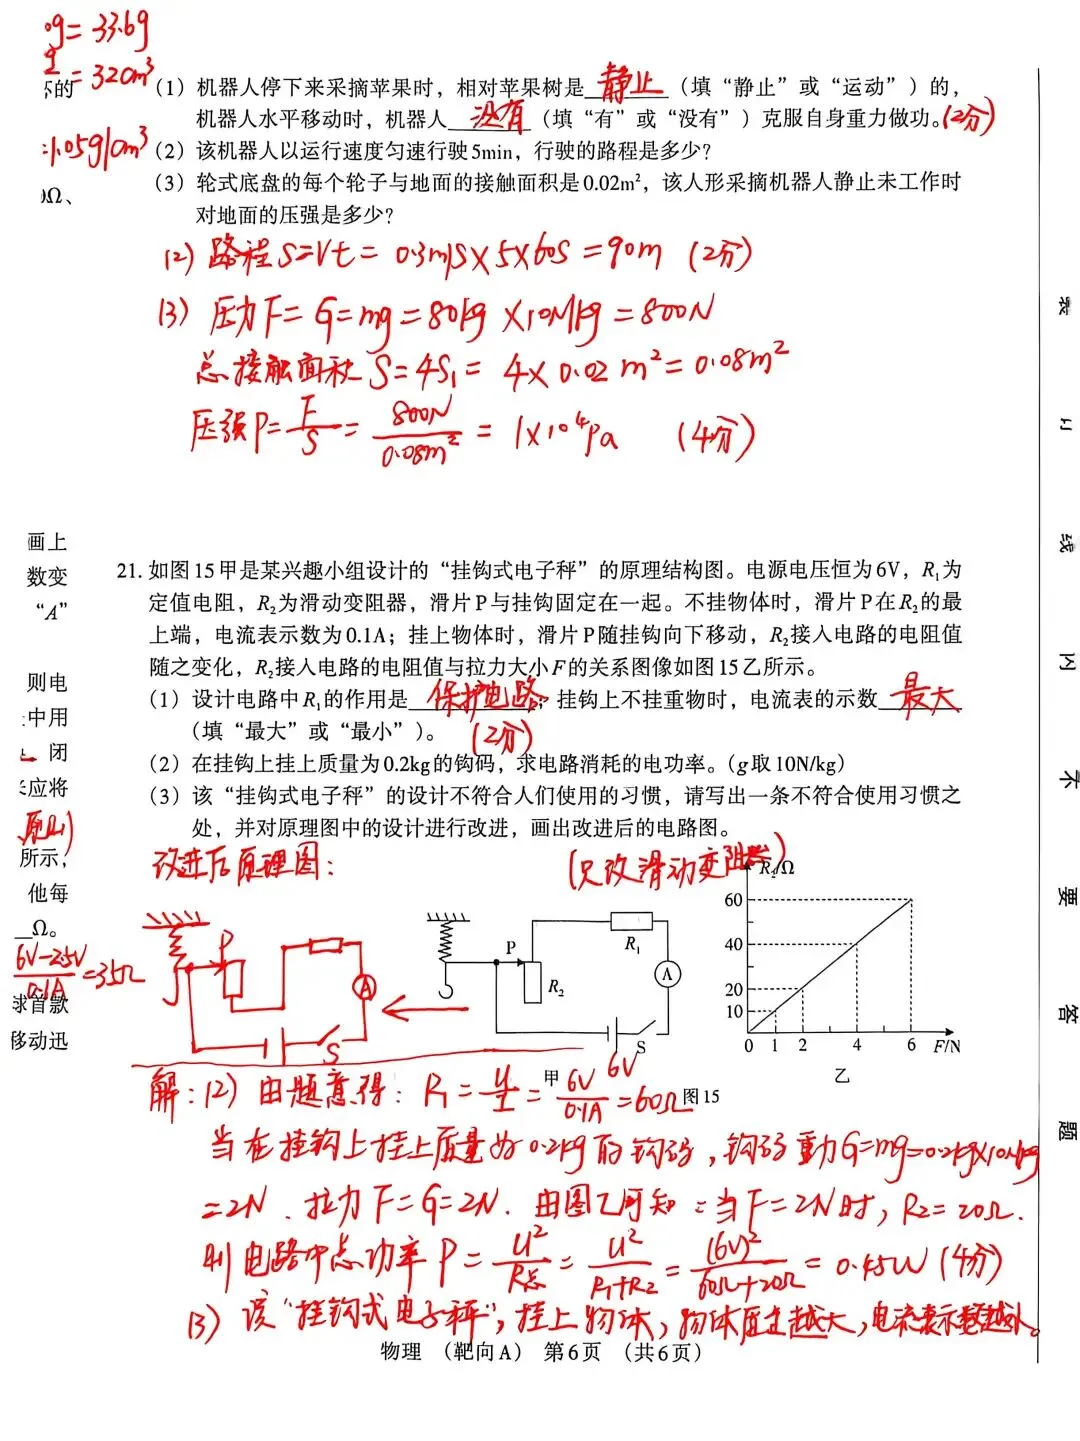 0g=33.6g
=32cm³
下的
=1.05g/cm³
0Ω、
(1) 机器人停下来采摘苹果时，相对苹果树是 静止 （填“静止”或“运动”）的，
机器人水平移动时，机器人 没有 （填“有”或“没有”）克服自身重力做功。(2分)
(2) 该机器人以运行速度匀速行驶5min，行驶的路程是多少？
(3) 轮式底盘的每个轮子与地面的接触面积是0.02m²，该人形采摘机器人静止未工作时
对地面的压强是多少？
(2) 路程 S=Vt= 0.3m/s×5×60s=90m (2分)
(3) 压力F=G=mg=80kg×10N/kg=800N
总接触面积 S=4S₁= 4×0.02m²=0.08m²
压强P=F/S=800N/0.08m²=1×10⁴Pa (4分)
画上
数变
“A”
则电
中用
闭
应将
所示，
他每
Ω。
6V-2.5V/0.1A=35Ω
求首款
移动迅
21. 如图15甲是某兴趣小组设计的“挂钩式电子秤”的原理结构图。电源电压恒为6V，R₁为
定值电阻，R₂为滑动变阻器，滑片P与挂钩固定在一起。不挂物体时，滑片P在R₂的最
上端，电流表示数为0.1A；挂上物体时，滑片P随挂钩向下移动，R₂接入电路的电阻值
随之变化，R₂接入电路的电阻值与拉力大小F的关系图像如图15乙所示。
(1) 设计电路中R₁的作用是 保护电路 ；挂钩上不挂重物时，电流表的示数 最大
（填“最大”或“最小”）。 (2分)
(2) 在挂钩上挂上质量为0.2kg的钩码，求电路消耗的电功率。（g取10N/kg）
(3) 该“挂钩式电子秤”的设计不符合人们使用的习惯，请写出一条不符合使用习惯之
处，并对原理图中的设计进行改进，画出改进后的电路图。
改进后原理图： (只改滑动变阻器)
P
A
S
P
R₁
R₂
A
S
6V
甲
R₂/Ω
60
40
20
10
0 1 2 4 6 F/N
乙
图15
解：(2) 由题意得：R₁=U/I=6V/0.1A=60Ω
当在挂钩上挂上质量为0.2kg的钩码，钩码重力G=mg=0.2kg×10N/kg
=2N．拉力F=G=2N．由图乙可知：当F=2N时，R₂=20Ω．
则电路中总功率P=U²/R总=U²/R₁+R₂=(6V)²/60Ω+20Ω=0.45W (4分)
(3) 该“挂钩式电子秤”，挂上物体，物体质量越大，电流表示数越小。
物理 （靶向A） 第6页 （共6页）
线
内
不
要
答
题